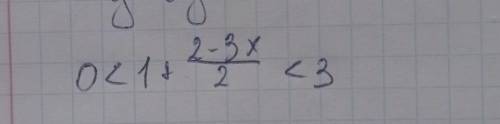 0 < 1 + \frac{2-3x}{2} < 3